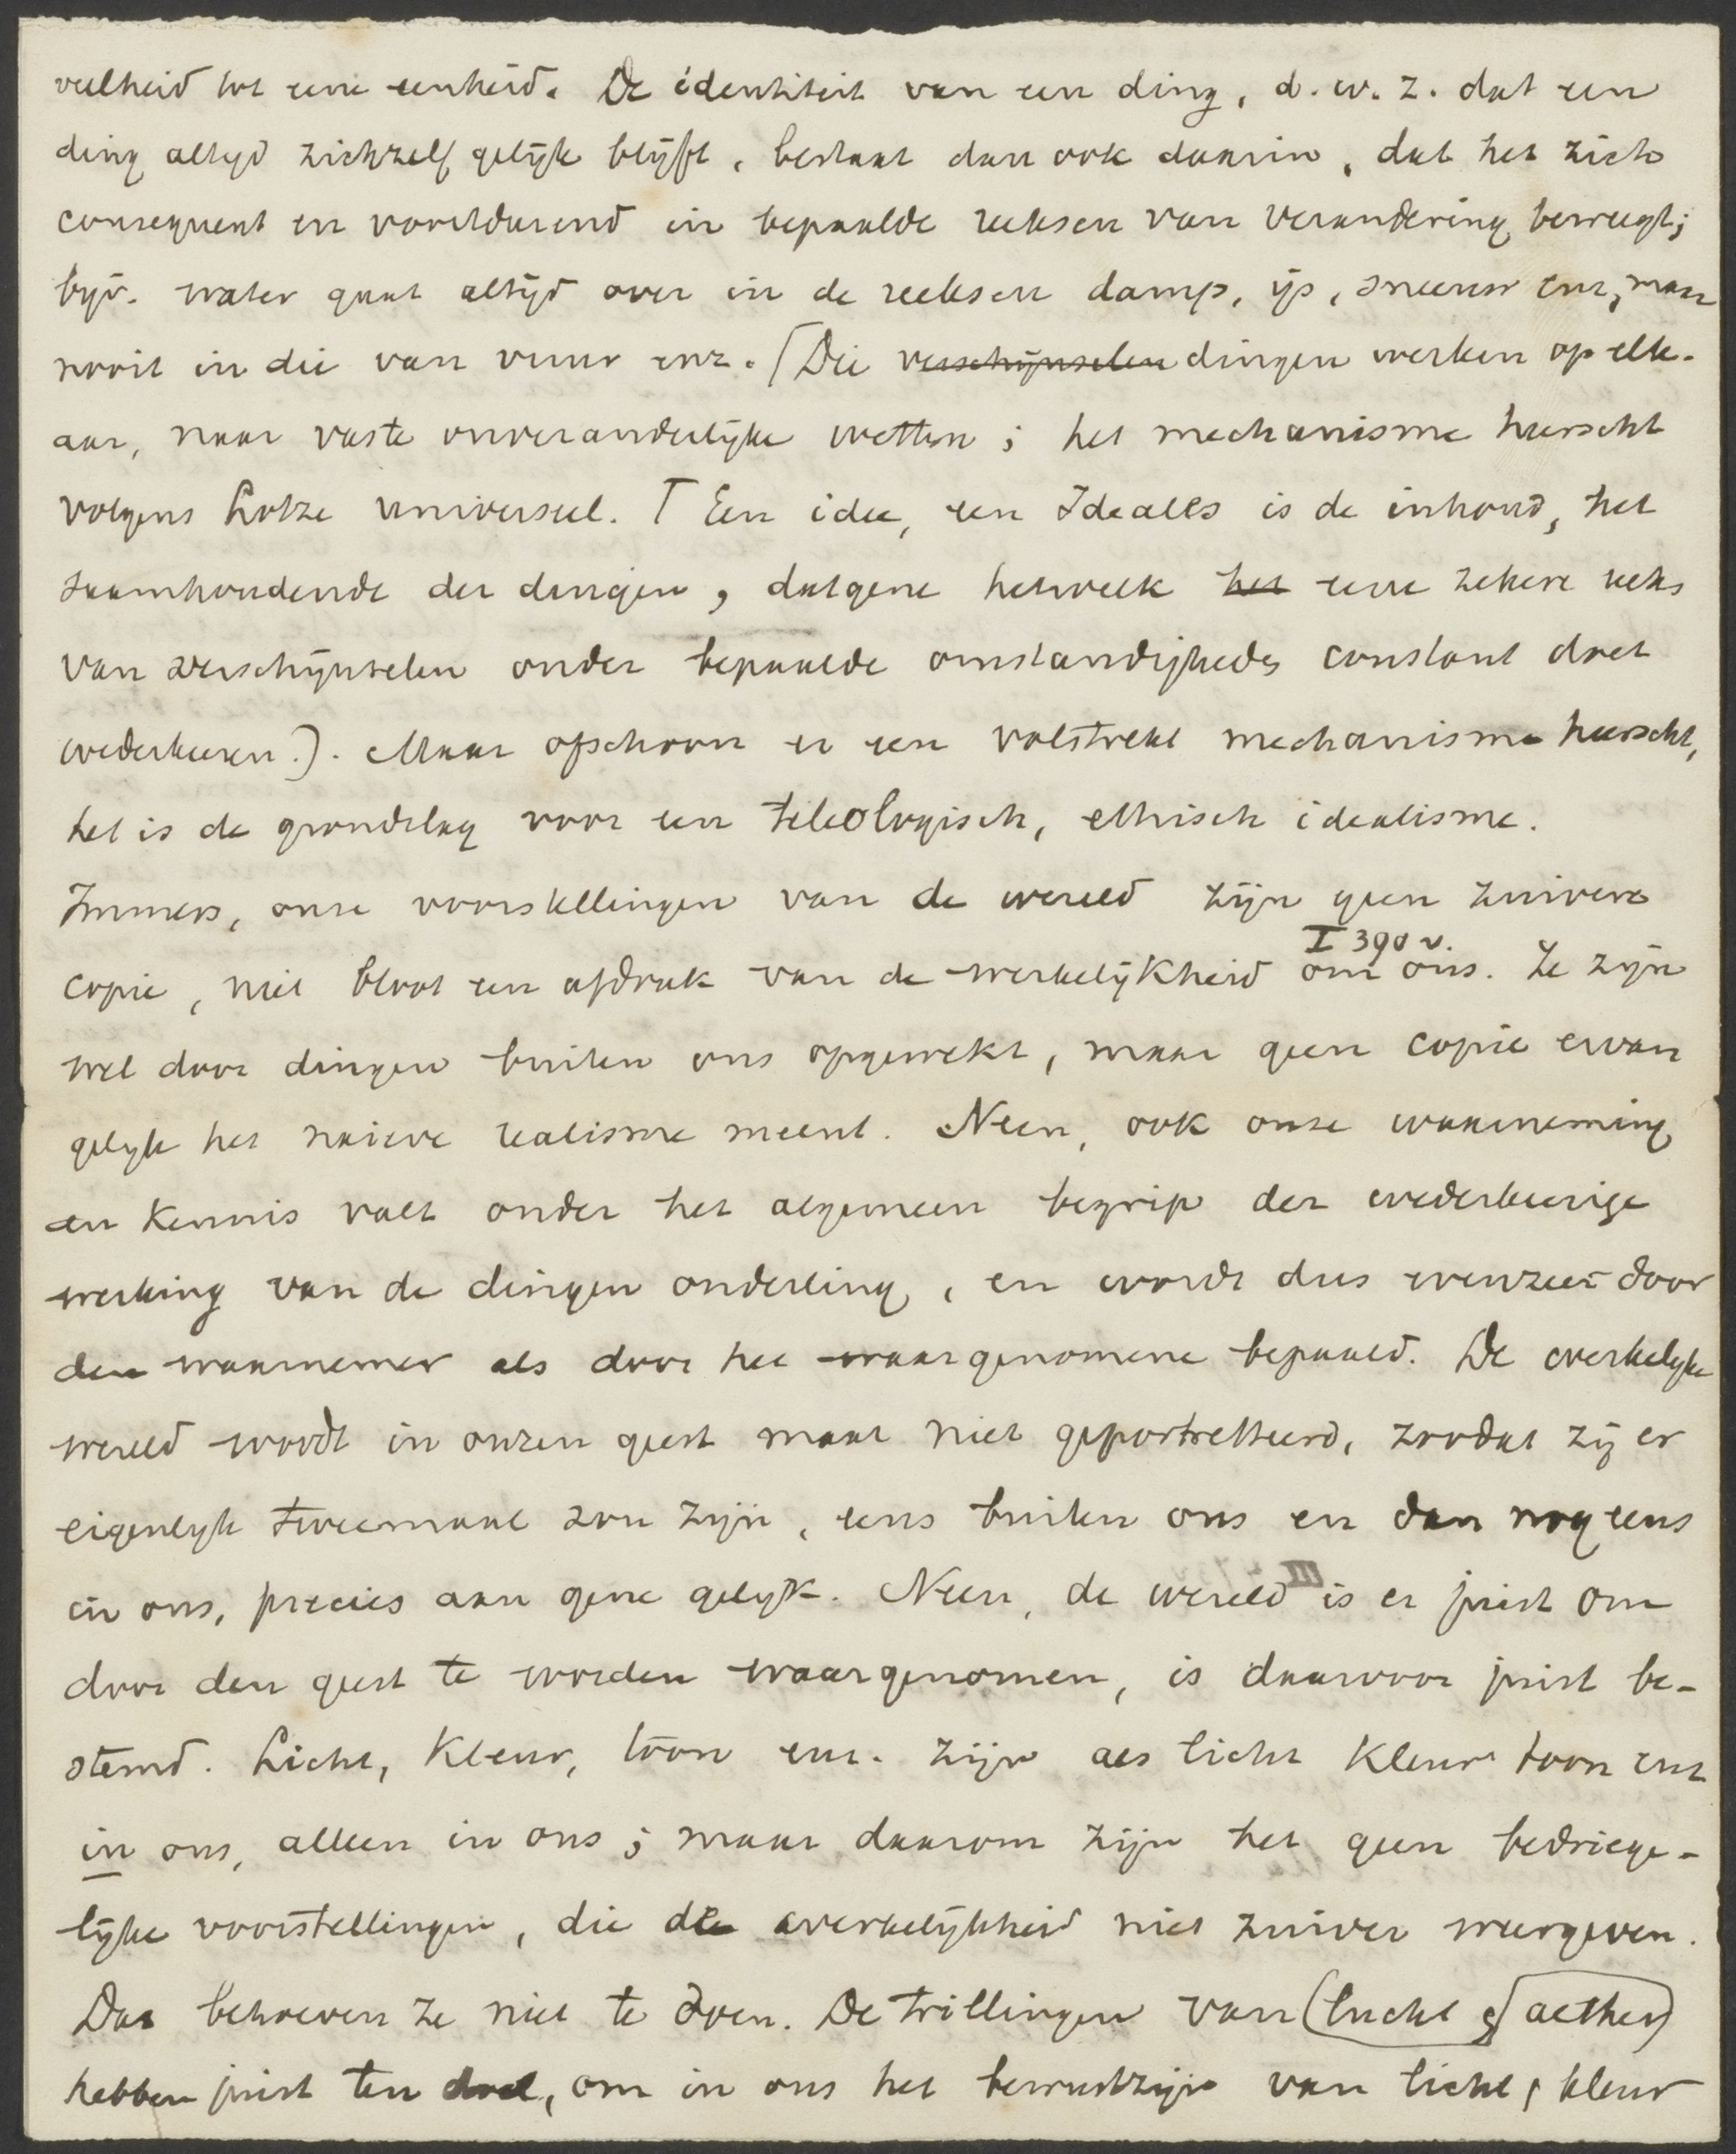 veelheid tot eene eenheid. De identiteit van een ding, d.w.z. dat een
ding altyd zichzelf gelijk blijft, bestaat dan ook daarin, dat het zich
consequent en voortdurend in bepaalde reeksen van verandering beweegt;
bijv. water gaat altijd over in de reeksen damp, ijs, sneeuw enz, maar
nooit in die van vuur enz. (Die verschijnselen dingen werken op elk-
aar, naar vaste onveranderlijke wetten; het mechanisme heerscht
volgens Lotze universeel. Een idee, een Idealls is de inhoud, het
saamhoudende der dingen, datgene hetwelk het eene zekere reeks
van verschijnselen onder bepaalde omstandigheden constant doet
wederkeeren.). Maar ofschoon er een volstrekt mechanisme heerscht,
het is de grondslag voor een teleologisch, ethisch idealisme.
Immers, onze voorstellingen van de wereld zijn geen zuivere
I 390 v.
copie, niet bloot een afdruk van de werkelijkheid om ons. Ze zijn
wel door dingen buiten ons opgewekt, maar geen copie ervan
gelyk het naieve realisme meent. Neen, ook onze waarneming
en kennis valt onder het algemeen begrip der wederkeerige
werking van de dingen onderling, en wordt dus evenzeer door
den waarnemer als door het waargenomene bepaald. De werkelyke
wereld wordt in onzen geest maar niet geportretteerd, zoodat zij er
eigenlyk tweemaal zou zijn, eens buiten ons en dan nog eens
in ons, precies aan gene gelyk. Neen, de wereld is er juist om
door den geest te worden waargenomen, is daarvoor juist be-
stemd. Licht, kleur, toon enz. zijn als licht kleur toon enz
in ons, alleen in ons; maar daarom zijn het geen bedriege-
lijke voorstellingen, die de werkelijkheid niet zuiver weergeven.
Dat behoeven ze niet te doen. De trillingen van (lucht of aether)
hebben juist ten doel, om in ons het bewustzijn van licht, kleur